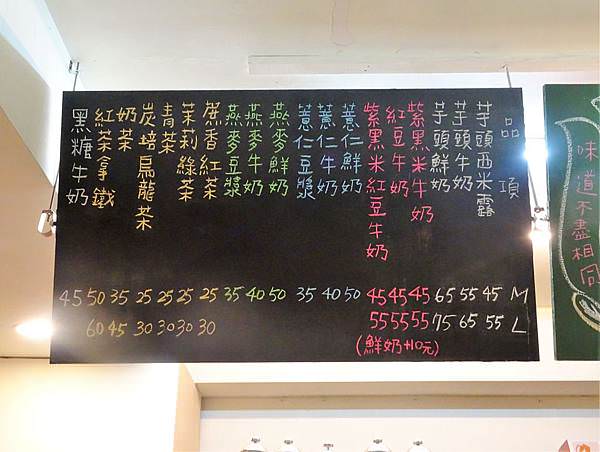 品項 M L
芋頭西米露 45 55
芋頭牛奶 55 65
芋頭鮮奶 65 75
紫黑米牛奶 45 55
紅豆牛奶 45 55
紫黑米紅豆牛奶 45 55
(鮮奶+10元)
薏仁鮮奶 50
薏仁牛奶 40
薏仁豆漿 35
燕麥鮮奶 50
燕麥牛奶 40
燕麥豆漿 35
蔗香紅茶 25 30
茉莉綠茶 25 30
青茶 25 30
炭培烏龍茶 25 30
奶茶 35 45
紅茶拿鐵 50 60
黑糖牛奶 45
味道不盡相同